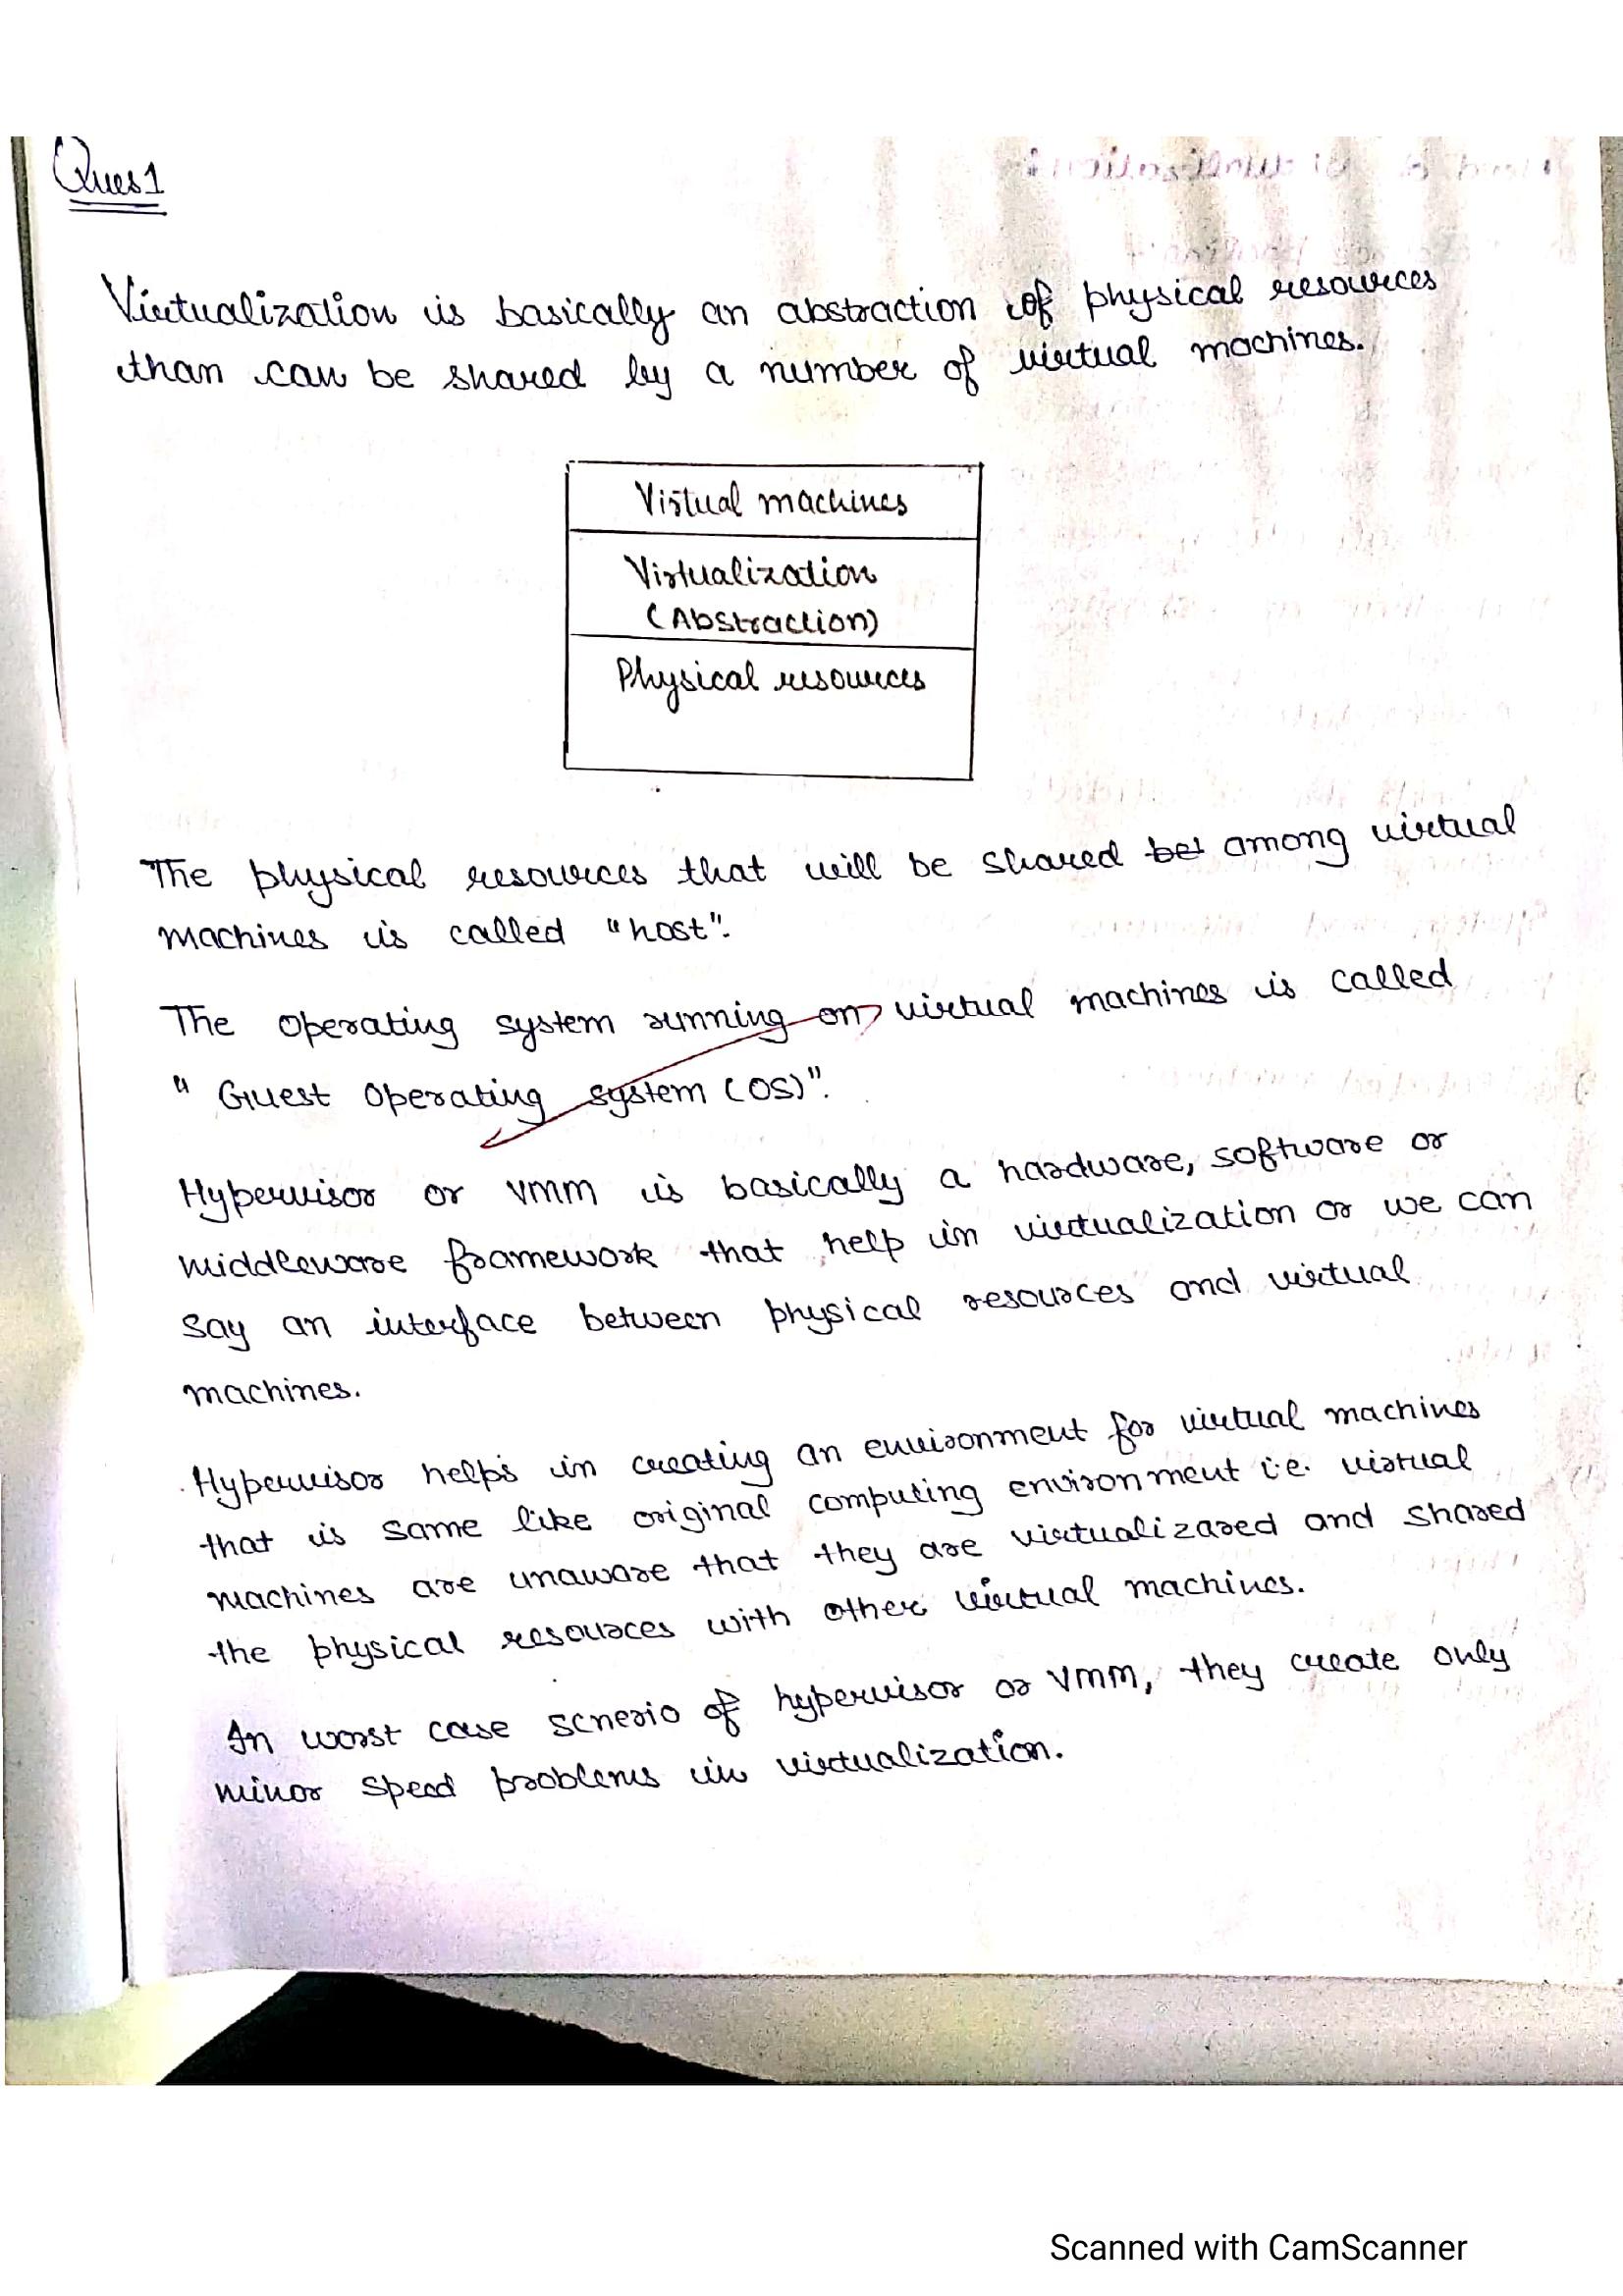 Ques 1
Virtualization is basically an abstraction of physical resources
than can be shared by a number of virtual machines.
Virtual machines
Virtualization
(Abstraction)
Physical resources
The physical resources that will be shared bet among virtual
machines is called "host".
The operating system running on virtual machines is called
" Guest operating system (OS)".
Hypervisor or VMM is basically a hardware, software or
middleware framework that help in virtualization or we can
say an interface between physical resources and virtual
machines.
Hypervisor helps in creating an environment for virtual machines
that is same like original computing environment i.e. virtual
machines are unaware that they are virtualizared and shared
the physical resources with other virtual machines.
In worst case scnerio of hypervisor or VMM, they create only
minor speed problems in virtualization.
Scanned with CamScanner